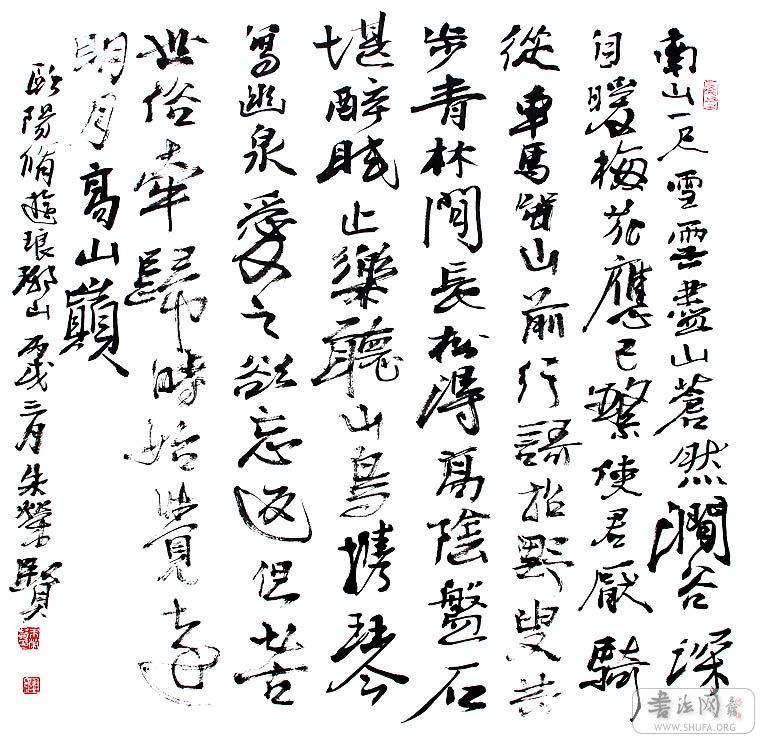 南山一尺雪雪盡山蒼然澗谷深
自暖梅花應已繁使君厭騎
從車馬留山前行謌招野叟共
步青林間長松得高陰盤石
堪醉眠止樂聽山鳥攜琴
寫幽泉愛之欲忘返但苦
世俗牽歸時始覺遠
明月高山巔
歐陽脩遊琅琊山丙戌三月朱榮賢
书法网
WWW.SHUFA.ORG